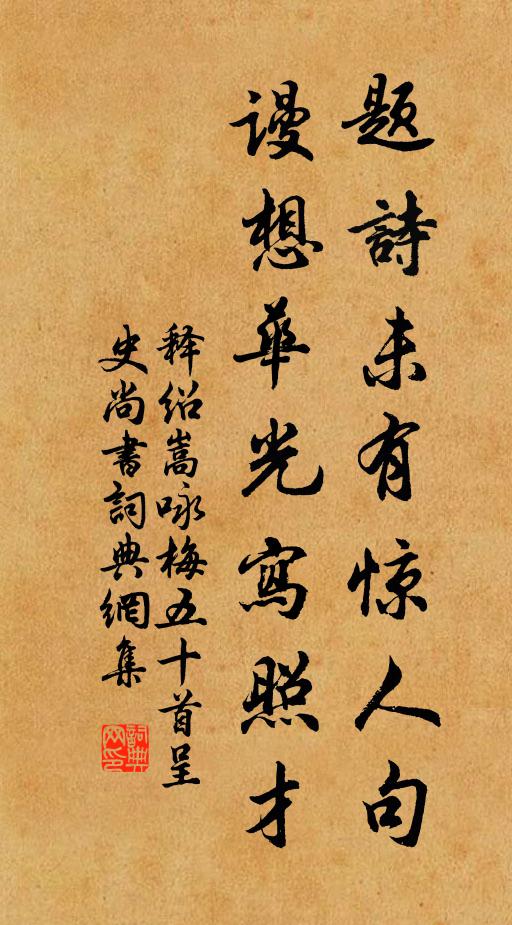 题詩未有惊人句
谩想華光寫照才
释绍嵩咏梅五十首呈
史尚書詞典網集
詞典网印